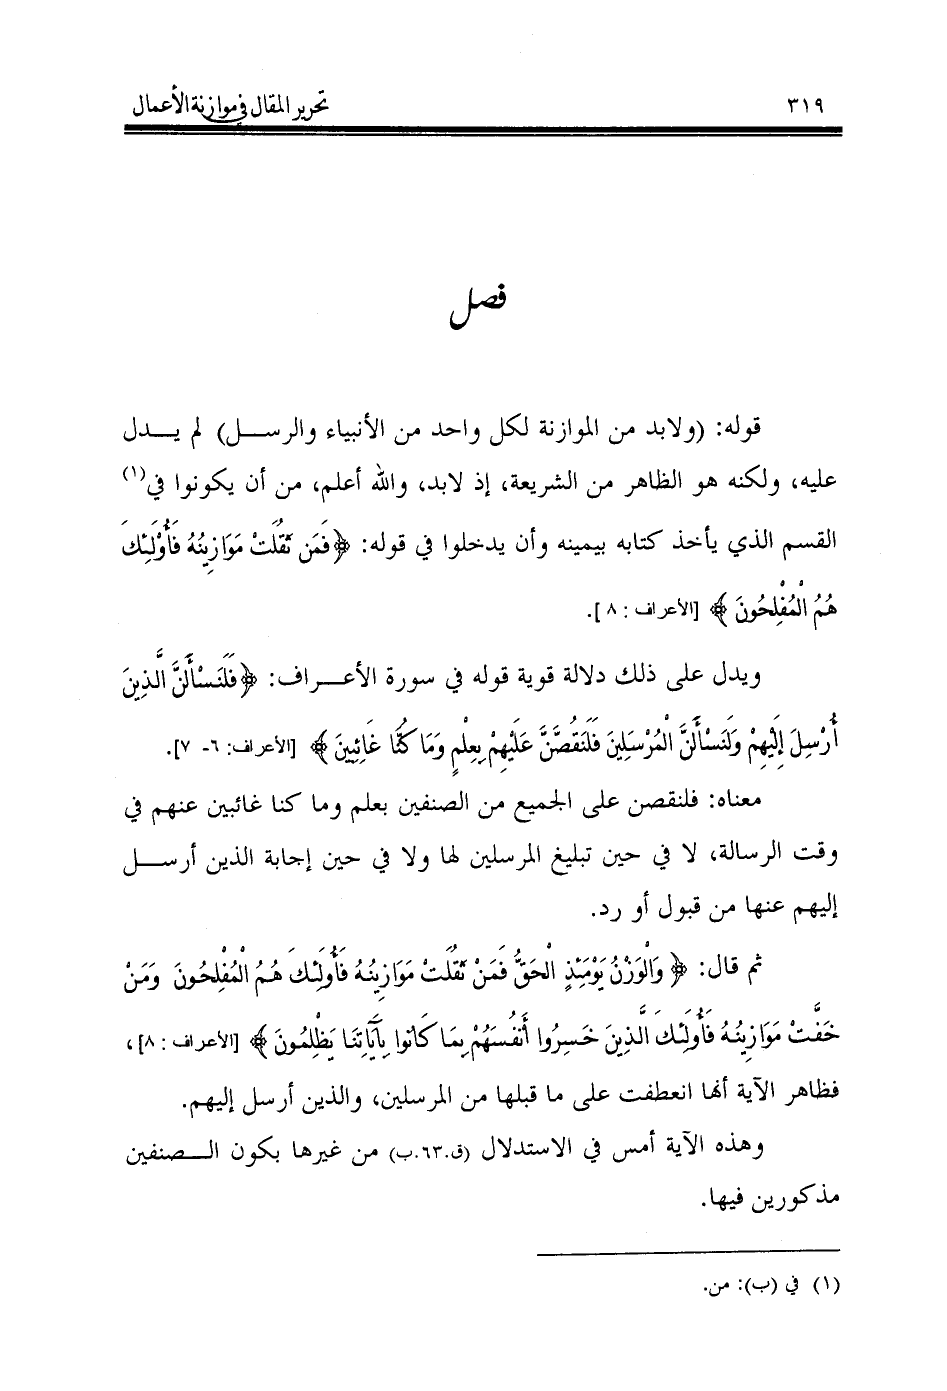 ٣١٩ تحرير المقال في موازنة الأعمال
فصل
قوله: (ولابد من الموازنة لكل واحد من الأنبياء والرسل) لم يدل
عليه، ولكنه هو الظاهر من الشريعة، إذ لابد، والله أعلم، من أن يكونوا في(١)
القسم الذي يأخذ كتابه بيمينه وأن يدخلوا في قوله: ﴿فَمَن ثَقُلَتْ مَوَازِينُهُ فَأُوْلَئِكَ
هُمُ الْمُفْلِحُونَ﴾ [الأعراف: ٨].
ويدل على ذلك دلالة قوية قوله في سورة الأعراف: ﴿فَلَنَسْأَلَنَّ الَّذِينَ
أُرْسِلَ إِلَيْهِمْ وَلَنَسْأَلَنَّ الْمُرْسَلِينَ فَلَنَقُصَّنَّ عَلَيْهِم بِعِلْمٍ وَمَا كُنَّا غَائِبِينَ﴾ [الأعراف: ٦- ٧].
معناه: فلنقصن على الجميع من الصنفين بعلم وما كنا غائبين عنهم في
وقت الرسالة، لا في حين تبليغ المرسلين لها ولا في حين إجابة الذين أرسل
إليهم عنها من قبول أو رد.
ثم قال: ﴿وَالْوَزْنُ يَوْمَئِذٍ الْحَقُّ فَمَنْ ثَقُلَتْ مَوَازِينُهُ فَأُولَئِكَ هُمُ الْمُفْلِحُونَ وَمَنْ
خَفَّتْ مَوَازِينُهُ فَأُولَئِكَ الَّذِينَ خَسِرُوا أَنفُسَهُمْ بِمَا كَانُوا بِآيَاتِنَا يَظْلِمُونَ﴾ [الأعراف: ٨]،
فظاهر الآية أنها انعطفت على ما قبلها من المرسلين، والذين أرسل إليهم.
وهذه الآية أمس في الاستدلال (ق.٦٣.ب) من غيرها بكون الصنفين
مذكورين فيها.
(١) في (ب): من.